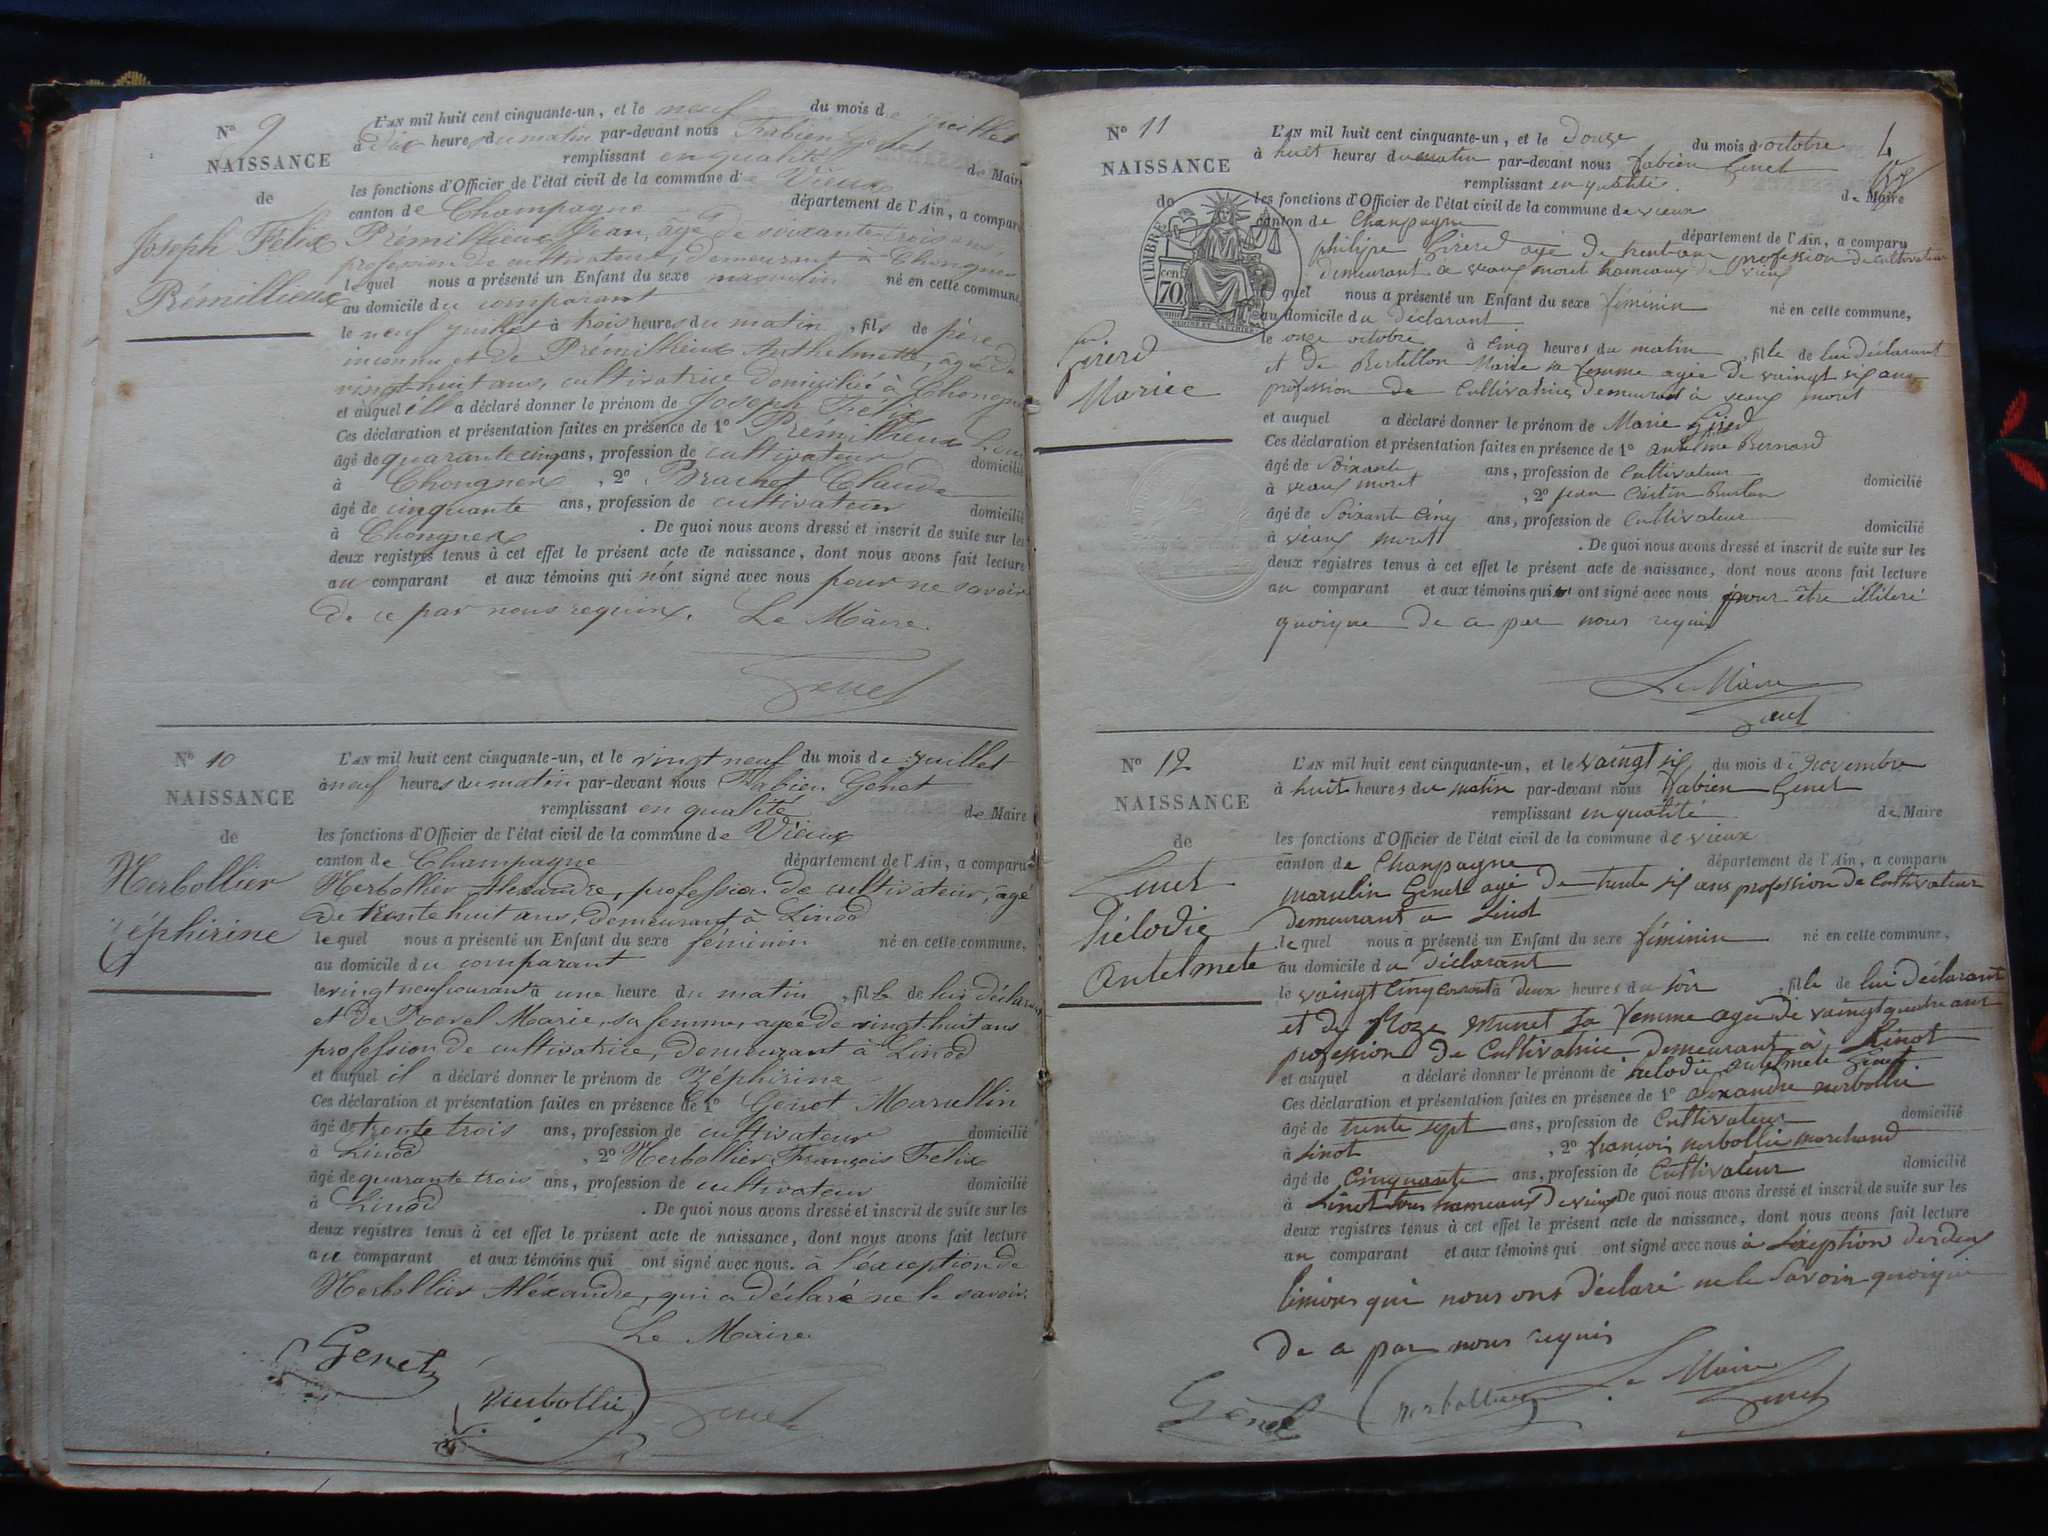 N° 9
NAISSANCE
de
Joseph Félix
Prémillieux
L'AN mil huit cent cinquante-un, et le neuf du mois de juillet
à dix heure du matin par-devant nous Fabien Genet
remplissant en qualité de Maire
les fonctions d'Officier de l'état civil de la commune de Vieux
canton de Champagne département de l'Ain, a comparu
Prémillieux Jean, âgé de soixante trois ans
profession de cultivateur, demeurant à Chongnes
lequel nous a présenté un Enfant du sexe masculin né en cette commune,
au domicile du comparant
le neuf juillet à trois heures du matin, fils de père
inconnu et de Prémillieux Anthelmette, âgée de
vingt-huit ans, cultivatrice domiciliée à Chongnes
et auquel il a déclaré donner le prénom de Joseph Félix
Ces déclaration et présentation faites en présence de 1° Prémillieux
âgé de quarante cinq ans, profession de cultivateur domicilié
à Chongnes, 2° Brachet Claude
âgé de cinquante ans, profession de cultivateur domicilié
à Chongnes. De quoi nous avons dressé et inscrit de suite sur les
deux registres tenus à cet effet le présent acte de naissance, dont nous avons fait lecture
au comparant et aux témoins qui n'ont signé avec nous pour ne savoir
de ce par nous requis. Le Maire
Genet
N° 10
NAISSANCE
de
Herbollier
Zéphirine
L'AN mil huit cent cinquante-un, et le vingt neuf du mois de juillet
à neuf heures du matin par-devant nous Fabien Genet
remplissant en qualité de Maire
les fonctions d'Officier de l'état civil de la commune de Vieux
canton de Champagne département de l'Ain, a comparu
Herbollier Alexandre, profession de cultivateur, âgé
de trente huit ans, demeurant à Linod
lequel nous a présenté un Enfant du sexe féminin né en cette commune,
au domicile du comparant
le vingt neuf courant à une heure du matin, fille de lui déclarant
et de Marie, sa femme, agée de vingt-huit ans
profession de cultivatrice, demeurant à Linod
et auquel il a déclaré donner le prénom de Zéphirine
Ces déclaration et présentation faites en présence de 1° Genet Marcellin
âgé de trente trois ans, profession de cultivateur domicilié
à Linod, 2° Herbollier François Felix
âgé de quarante trois ans, profession de cultivateur domicilié
à Linod. De quoi nous avons dressé et inscrit de suite sur les
deux registres tenus à cet effet le présent acte de naissance, dont nous avons fait lecture
au comparant et aux témoins qui ont signé avec nous. à l'exception de
Herbollier Aléxandre, qui a déclaré ne le savoir.
Le Maire
Genet
Herbollie
Genet
4
N° 11
NAISSANCE
de
TIMBRE
70 cen
Girerd
Mariee
L'AN mil huit cent cinquante-un, et le Douze du mois d octobre
à huit heures du matin par-devant nous fabien Genet
remplissant en qualité de Maire
les fonctions d'Officier de l'état civil de la commune de vieux
canton de Chanpagne département de l'Ain, a comparu
philipe Girerd agé de trent ans profession de cultivateur
demeurant à vaux mort hameaux de vieux
lequel nous a présenté un Enfant du sexe féminin né en cette commune,
au domicile du déclarant
le onze octobre à cinq heures du matin, fille de lui déclarant
et de Bertillon Marie sa femme agée de vaingt six ans
profession de Cultivatrice demeurant à vaux mort
et auquel a déclaré donner le prénom de Marie Girerd
Ces déclaration et présentation faites en présence de 1° antelme Bernard
âgé de Soixante ans, profession de Cultivateur domicilié
à vaux mort, 2° jean
âgé de Soixante Cinq ans, profession de Cultivateur domicilié
à vaux mort. De quoi nous avons dressé et inscrit de suite sur les
deux registres tenus à cet effet le présent acte de naissance, dont nous avons fait lecture
au comparant et aux témoins qui ont signé avec nous pour être illiteré
quoique de a par nous requis
Le Maire
Genet
N° 12
NAISSANCE
de
Genet
Mélodie
antelmete
L'AN mil huit cent cinquante-un, et le vaingt six du mois de Novembre
à huit heures du matin par-devant nous fabien Genet
remplissant en qualité de Maire
les fonctions d'Officier de l'état civil de la commune de vieux
canton de Chanpagne département de l'Ain, a comparu
marcelin Genet agé de trente six ans profession de Cultivateur
demeurant a Linot
lequel nous a présenté un Enfant du sexe féminin né en cette commune,
au domicile du déclarant
le vaingt Cinq courant à deux heures du soir, fille de lui déclarant
et de Roze Brunet sa femme agée de vaingt quatre ans
profession de Cultivatrice demeurant à Linot
et auquel a déclaré donner le prénom de melodie antelmete Genet
Ces déclaration et présentation faites en présence de 1° alexandre nerbollie
âgé de trente sept ans, profession de Cultivateur domicilié
à Linot, 2° francois nerbollie marchand
âgé de Cinquante ans, profession de Cultivateur domicilié
à Linot tous hameaux de vieux De quoi nous avons dressé et inscrit de suite sur les
deux registres tenus à cet effet le présent acte de naissance, dont nous avons fait lecture
au comparant et aux témoins qui ont signé avec nous à Léxeption des deux
témoins qui nous ons déclaré ne le Savoir quoique
de a par nous requis
Le Maire
Génet
nerbollier
Genet